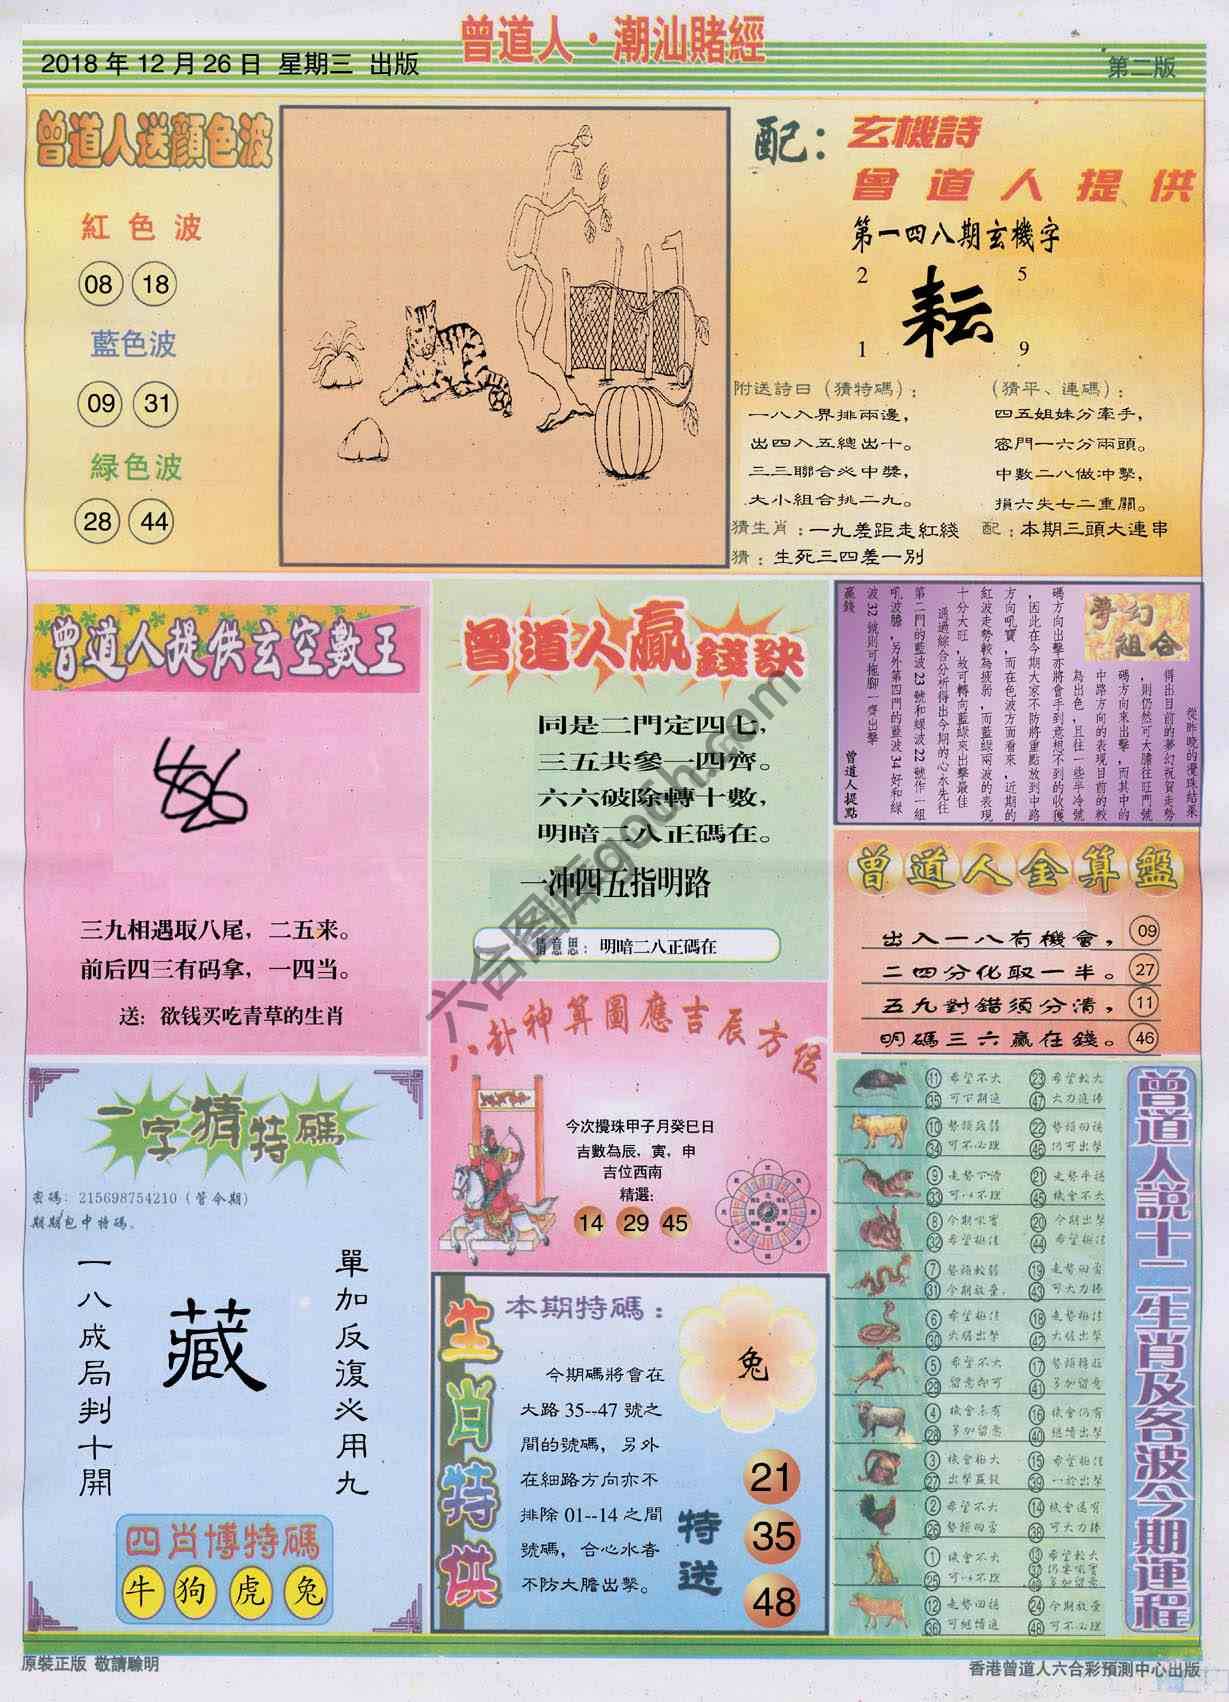 曾道人·潮汕賭經
2018年12月26日 星期三 出版
第二版
曾道人送顏色波
紅色波
08 18
藍色波
09 31
緑色波
28 44
配：
玄機詩
曾道人提供
第一四八期玄機字
2 5
耘
1 9
附送詩曰（猜特碼）：
一八入界排兩邊，
出四入五總出十。
三三聯合必中獎，
大小組合挑二九。
（猜平、連碼）：
四五姐妹分牽手，
容門一六分兩頭。
中數二八做冲擊，
損六失七二重關。
猜生肖：一九差距走紅綫
配：本期三頭大連串
猜：生死三四差一別
曾道人提供玄空數王
三九相遇取八尾，二五来。
前后四三有码拿，一四当。
送：欲钱买吃青草的生肖
曾道人贏錢訣
同是二門定四七，
三五共參一四齊。
六六破除轉十數，
明暗二八正碼在。
一冲四五指明路
猜意思：明暗二八正碼在
夢幻
組合
從昨晚的攪珠結果
得出目前的夢幻祝賀走勢
，則仍然可大膽往旺門號
碼方向來出擊，而其中的
中路方向的表現目前的較
為出色，且往一些半冷號
碼方向出擊亦將會手到意想不到的收獲
，因此在今期大家不防將重點放到中路
方向吼寶，而在色波方面看來，近期的
紅波走勢較為疲弱，而藍綠兩波的表現
十分大旺，故可轉向藍綠來出擊最佳
通過綜合分析得出今期的心水先往
第二門的藍波23號和綠波22號作一組
吼波膽，另外第四門的藍波34好和綠
波32號則可拖腳一齊出擊
贏錢
曾道人提點
曾道人金算盤
出入一八有機會， 09
二四分化取一半。 27
五九對錯須分清， 11
明碼三六贏在錢。 46
八卦神算圖應吉辰方位
今次攪珠甲子月癸巳日
吉數為辰，寅，申
吉位西南
精選：
14 29 45
一字猜特碼
密碼：215698754210（管今期）
期期包中特碼。
單加反復必用九
藏
一八成局判十開
四肖博特碼
牛 狗 虎 兔
生肖特供
本期特碼：
今期碼將會在
大路35--47號之
間的號碼，另外
在細路方向亦不
排除01--14之間
號碼，合心水者
不防大膽出擊。
兔
特送
21
35
48
曾道人説十二生肖及各波今期運程
11 希望不大 23 希望較大
35 可下期追 47 大力追捧
10 勢頭疲弱 22 勢頭回穩
34 可不必理 46 仍可出擊
9 走勢下滑 21 走勢平穩
33 可以不理 45 機會不大
8 今期吼實 20 今期出擊
32 希望極佳 44 希望極佳
7 勢頭較弱 19 走勢回勇
31 今期放量 43 可大力捧
6 希望極佳 18 走勢極佳
30 大膽出擊 42 大膽出擊
5 希望不大 17 勢頭轉旺
29 留意即可 41 多加留意
4 機會未有 16 機會仍有
28 多加留意 40 繼續出擊
3 機會極大 15 希望極佳
27 出擊贏錢 39 一於出擊
2 希望不大 14 機會還有
26 勢頭回勇 38 可大力捧
1 機會不大 13 希望較大
25 可以不理 37 仍要吼實
49 多加留意
12 走勢回穩 24 今期放量
36 可繼續追 48 可不必理
原裝正版 敬請驗明
香港曾道人六合彩預測中心出版
六合图库gouh.com